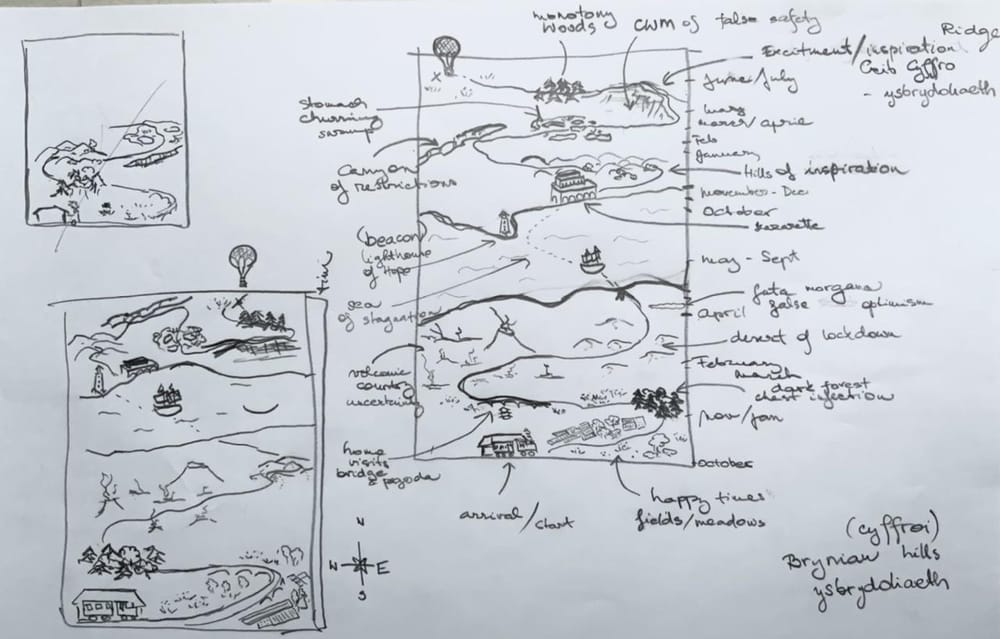 monotony
woods
cwm of false safety
Ridge
Excitment/inspiration
Crib Cyffro
- ysbrydoliaeth
June/July
stomach
churning
swamp
may
march/april
Feb
January
Canyon
of restrictions
Hills of inspiration
november - Dec
October
(beacon)
lighthouse
of Hope
may - Sept
sea
of stagnation
fata morgana
false optimism
april
desert of lockdown
volcanic
country
February
March
dark forest
chest infection
nov/jan
home
visits
bridge
& pagoda
October
arrival/start
happy times
fields/meadows
Time
N
E
S
(cyffroi)
Bryniau hills
ysbryddiaeth